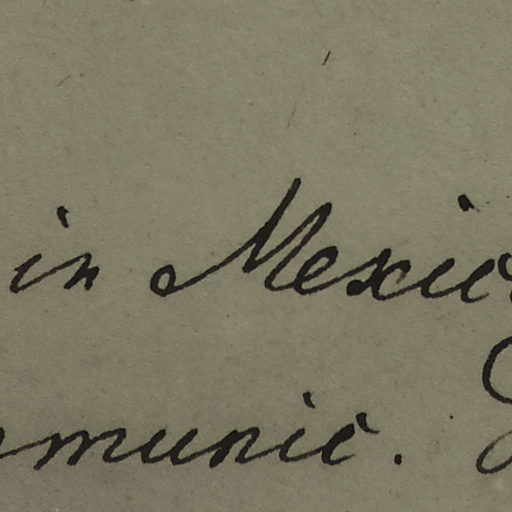 in Mexico
mmunic.